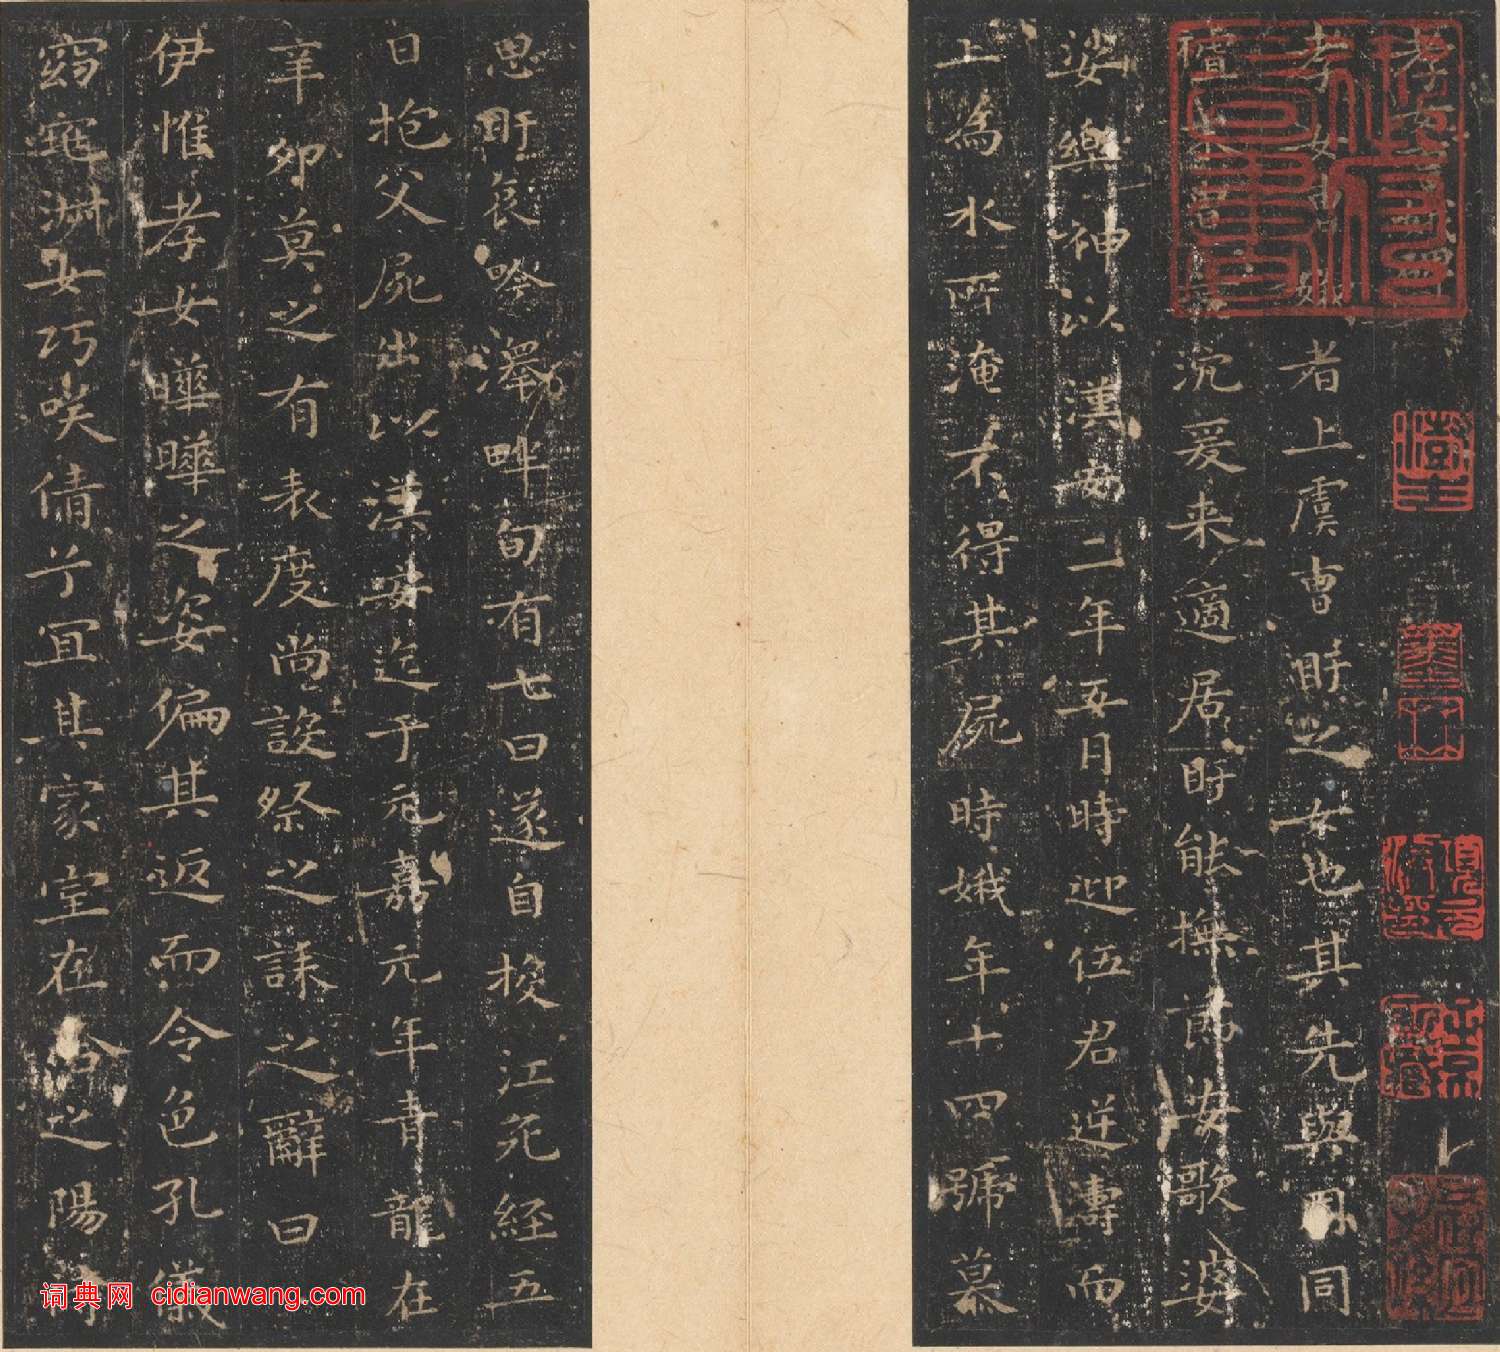 孝女曹娥碑
孝女曹娥者上虞曹盱之女也其先與周同
祖末胄荒沉爰来適居盱能撫節安歌婆
娑樂神以漢安二年五月時迎伍君逆濤而
上為水所淹不得其屍時娥年十四號慕
思盱哀吟澤畔旬有七日遂自投江死經五
日抱父屍出以漢安迄于元嘉元年青龍在
辛卯莫之有表度尚設祭之誄之辭曰
伊惟孝女曄曄之姿偏其返而令色孔儀
窈窕淑女巧咲倩兮宜其家室在洽之陽待
词典网 cidianwang.com